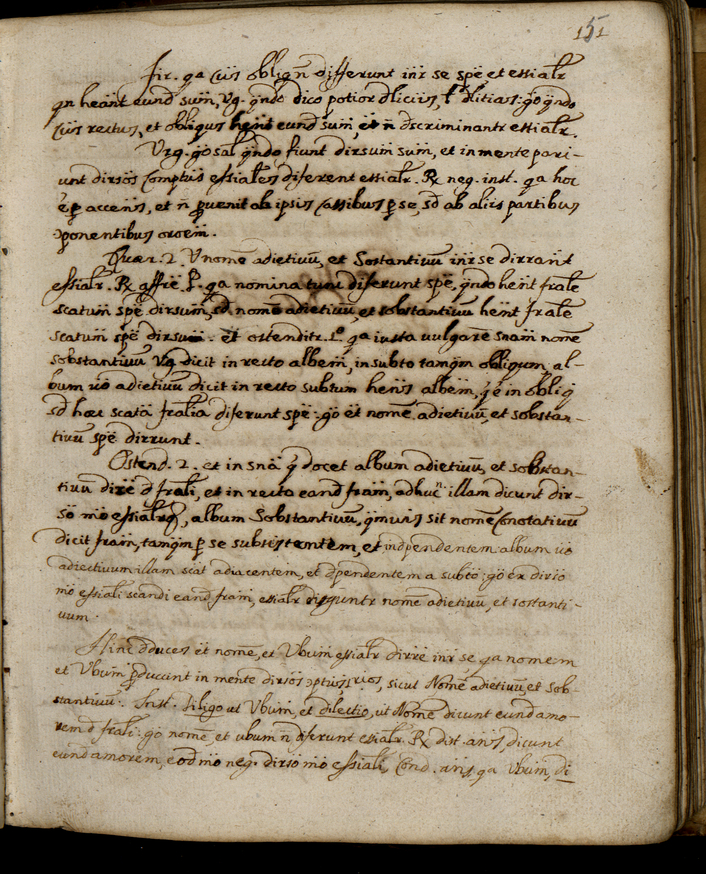 151
fir. qa cus obliqn differunt inr se spē et essialr
qn heānt eund sum, Vg. qndo dico potior dliciis, l dlitias: go qndo
cus rectus, et obliqus hent eund sum, et n dscriminantr essialr.
Urg. go sal qndo fiunt dirsum sum, et in mente pari-
unt dirsos comptus essiales diferent essialr. Rx neg. inst. qa hoc
ē p accens, et n puenit ab ipsis cassibus p se, sd ab aliis partibus
ponentibus oroem.
Quær. 2. V nomē adietiuū, et Sostantiuū inr se dirrant
essialr. Rx affrē P. qa nomina tunc diferunt spē, qndo hent frale
scatum spē dirsum, sd nomē adietiuū, et sobstantiuū hent frale
scatum spē dirsum. et ostenditr. qa iusta uulgarē snam nomē
sobstantiuū Vg. dicit in recto albem, in subto tamqm obliqum, al-
bum uo adietiuū dicit in recto subtum hens albem, q ē in obliq
sd hæc scata fralia diferunt spē: go et nomē adietiuū, et sobstan-
tiuū spē dirrunt.
Ostend. 2. et in sna q docet album adietiuū, et sobstan-
tiuū dirē d frali, et in recto eand fram, adhuc n. illam dicunt dir-
so mo essialr, album Sobstantiuū, qmuis sit nomē Conotatiuū
dicit fram, tamqm p se subsistentem, et indpendentem album uo
adiectiuum illam scat adiacentem, et dpendentem a subto: go ex dirso
mo essiali scandi eand fram, essialr disguntr nomē adietiuū, et sostanti-
uum.
Hinc dduces et nomē, et Vbum essialr dirrē inr se qa nomem
et Vbum pducunt in mente dirsos ptus, sicut Nomē adietiuū, et Sob-
stantiuū. Inst. diligo ut Vbum, et dilectio, ut Nomē dicunt eund amo-
rem d frali: go nomē, et ubum n dferunt essialr. Rx dist. ans, dicunt
eund amorem, eod mo neg. dirso mo essiali, Cond. ans. qa Vbum, di-